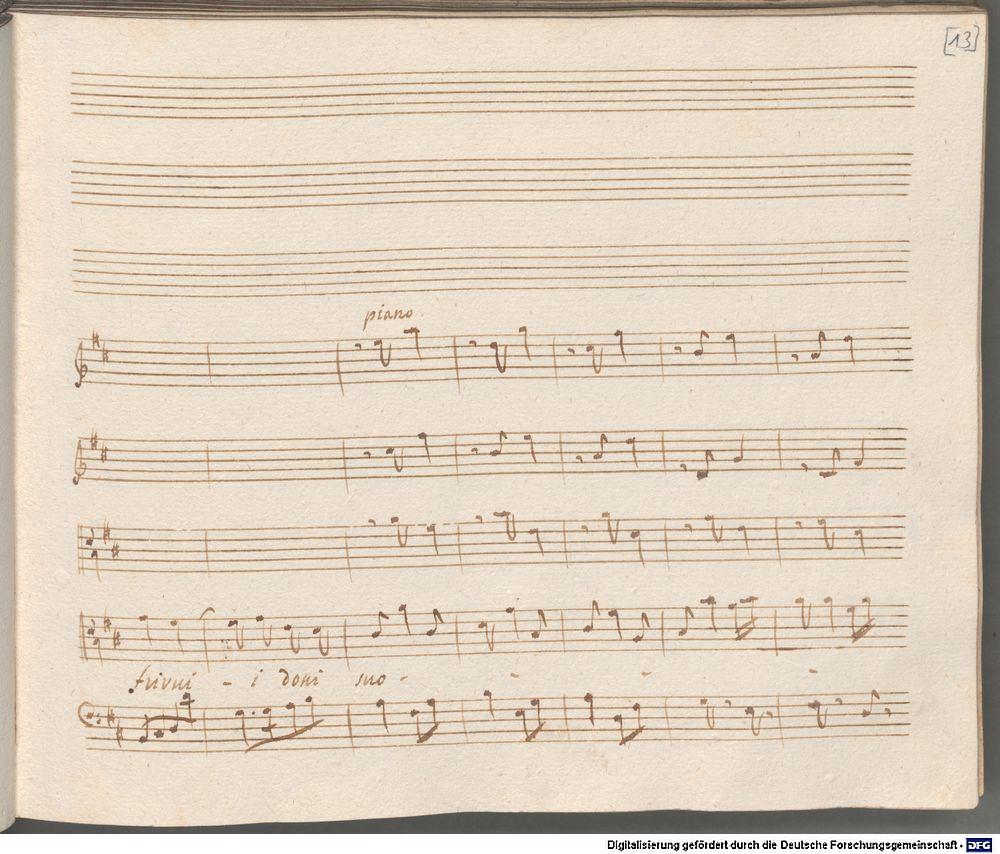 [13]
piano
- i doni suo -
- - -
Digitalisierung gefördert durch die Deutsche Forschungsgemeinschaft - DFG